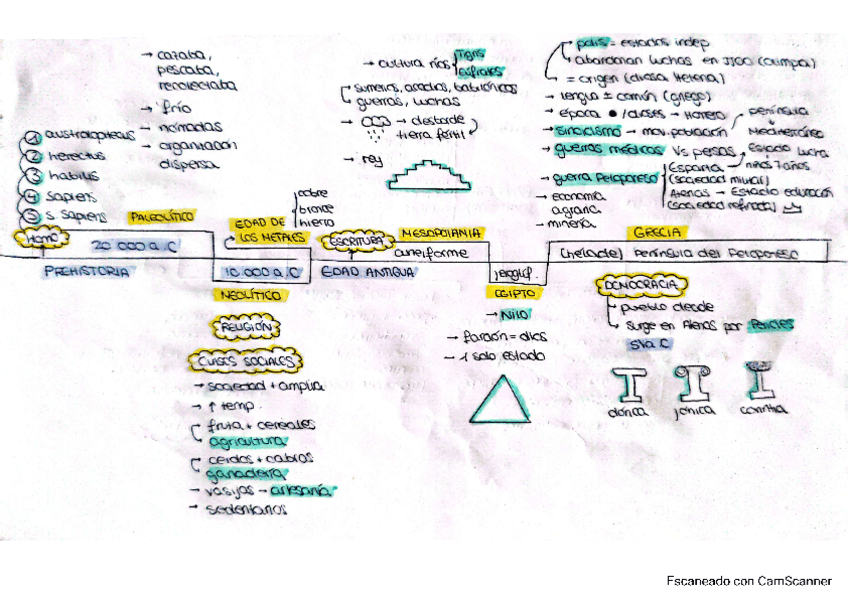 → cazaba,
pescaba,
recolectaba
→ frío
→ nómadas
→ organización
dispersa
① australopitecus
② herectus
③ habilis
④ sapiens
⑤ s. sapiens
PALEOLÍTICO
HOMO
20 000 a.C
PREHISTORIA
EDAD DE
LOS METALES
cobre
bronce
hierro
10 000 a.C
NEOLÍTICO
RELIGIÓN
CLASES SOCIALES
→ sociedad + amplia
→ ↑ temp.
fruta + cereales
agricultura
cerdos + cabras
ganadería
→ vasijas → artesanía
→ sedentarios
→ cultura ríos
Tigris
Eufrates
sumerios, acadios, babilónicos
guerras, luchas
→ desborde
tierra fértil
→ rey
ESCRITURA
MESOPOTAMIA
cuneiforme
EDAD ANTIGUA
jeroglíf.
EGIPTO
→ Nilo
→ faraón = dios
→ 1 solo estado
polis = estados indep
abandonan luchas en JJOO (olimpia)
= origen (diosa Helena)
→ lengua = común (griego)
→ época ● /clases → Homero
península
Mediterráneo
→ sinoicismo → mov. población
→ guerras médicas vs persas
→ guerra Peloponeso
Esparta → Estado lucha
niños 7 años
(sociedad militar)
Atenas → Estado educación
(sociedad refinada)
→ economía
agraria
→ minería
GRECIA
(helade) Península del Peloponeso
DEMOCRACIA
pueblo decide
surge en Atenas por Pericles
S V a.C
dórica
jónica
corintia
Escaneado con CamScanner